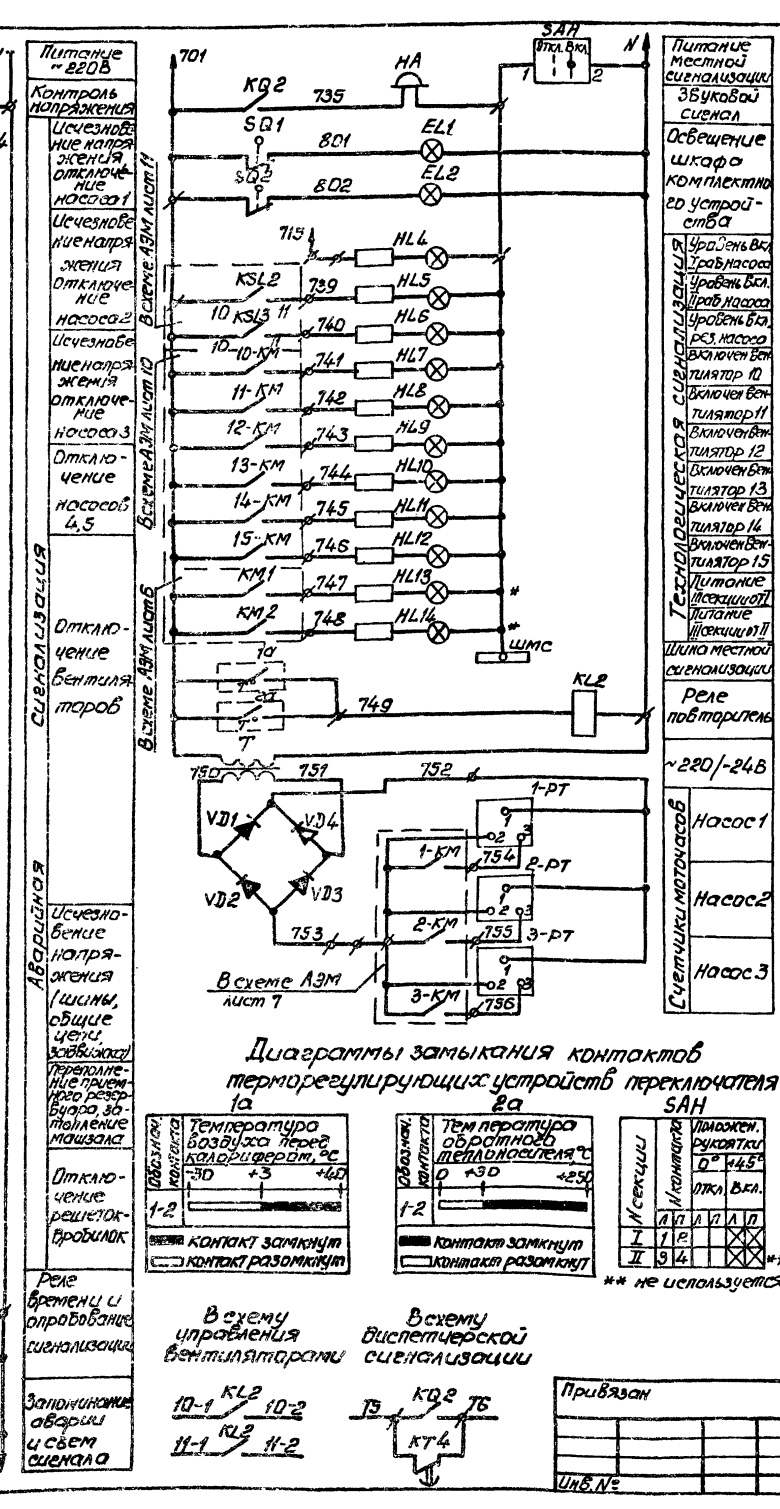 Питание
~220В
Контроль
напряжения
Исчезнове
ние напря
жения
отключе
ние
насоса 1
Исчезнове
ние напря
жения
Отключе
ние
насоса 2
Исчезнове
ние напря
жения
отключе-
ние
насоса 3
Отклю-
чение
насосов
4,5
Отклю-
чение
вентиля-
торов
Аварийная сигнализация
Исчезно-
вение
напря-
жения
(шины,
общие
цепи,
задвижка)
Переполне-
ние прием-
ного резер-
вуара, за-
топление
машзала
Отклю-
чение
решеток-
дробилок
Реле
времени и
опробование
сигнализации
Запоминание
аварии
и съем
сигнала
701
KQ2
735
HA
SAH
Откл. Вкл.
1
2
N
SQ1
801
EL1
SQ2
802
EL2
715
HL4
KSL2
739
HL5
10
KSL3
11
740
HL6
10
10-КМ
11
741
HL7
11-КМ
742
HL8
12-КМ
743
HL9
13-КМ
744
HL10
14-КМ
745
HL11
15-КМ
746
HL12
КМ1
747
HL13
*
КМ2
748
HL14
*
ШМС
В схеме АЭМ лист 11
В схеме АЭМ лист 10
В схеме АЭМ лист 6
1а
2а
749
KL2
Т
750
751
752
VD1
VD4
VD2
VD3
753
1-РТ
1
2
3
1-КМ
754
2-РТ
1
2
3
2-КМ
755
3-РТ
1
2
3
3-КМ
756
В схеме АЭМ
лист 7
Питание
местной
сигнализации
Звуковой
сигнал
Освещение
шкафа
комплектно
го устрой-
ства
Технологическая сигнализация
Уровень Вкл
I раб насоса
Уровень Вкл.
II раб насоса
Уровень Вкл.
рез. насоса
Включен Вен
тилятор 10
Включен Вен-
тилятор 11
Включен Вен-
тилятор 12
Включен Вен
тилятор 13
Включен Вен
тилятор 14
Включен Вен-
тилятор 15
Питание
III секции от I
Питание
III секции от II
Шина местной
сигнализации
Реле
повторитель
~220/-24В
Счетчики моточасов
Насос 1
Насос 2
Насос 3
Диаграммы замыкания контактов
терморегулирующих устройств переключателя
1а
Обознач. контакта
Температура
воздуха перед
калорифером, °С
-30 +3 +40
1-2
контакт замкнут
контакт разомкнут
2а
Обознач. контакта
Температура
обратного
теплоносителя °С
0 +30 +250
1-2
Контакт замкнут
Контакт разомкнут
SAH
N секции
N контакта
Положен.
рукоятки
0° +45°
Откл. Вкл.
Л П Л П Л П
I 1 2
II 3 4
** не используется
В схему
управления
вентиляторами
10-1 KL2 10-2
11-1 KL2 11-2
В схему
диспетчерской
сигнализации
Т5 KQ2 Т6
КТ4
Привязан
Инв. №